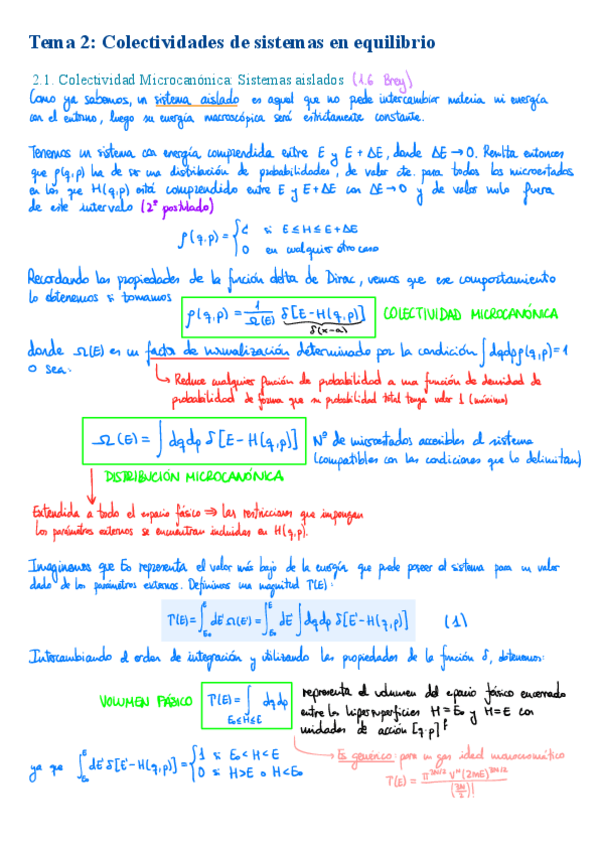 Tema 2: Colectividades de sistemas en equilibrio
2.1. Colectividad Microcanónica: Sistemas aislados (1.6 Brey)
Como ya sabemos, un sistema aislado es aquel que no puede intercambiar materia ni energía
con el entorno, luego su energía macroscópica será estrictamente constante.
Tenemos un sistema con energía comprendida entre E y E + ΔE, donde ΔE → 0. Resulta entonces
que ρ(q,p) ha de ser una distribución de probabilidades, de valor cte. para todos los microestados
en los que H(q,p) está comprendido entre E y E+ΔE con ΔE → 0 y de valor nulo fuera
de este intervalo (2º postulado)
ρ(q,p) = { C si E ≤ H ≤ E+ΔE
0 en cualquier otro caso
Recordando las propiedades de la función delta de Dirac, vemos que ese comportamiento
lo obtenemos si tomamos ρ(q,p) = 1/Ω(E) δ[E-H(q,p)] COLECTIVIDAD MICROCANÓNICA
δ(x-a)
donde Ω(E) es un factor de normalización determinado por la condición ∫dqdp ρ(q,p)=1
o sea:
↳ Reduce cualquier función de probabilidad a una función de densidad de
probabilidad de forma que su probabilidad total tenga valor 1 (máximo)
Ω(E) = ∫ dq dp δ[E-H(q,p)] Nº de microestados accesibles al sistema
(compatibles con las condiciones que lo delimitan)
DISTRIBUCIÓN MICROCANÓNICA
Extendida a todo el espacio fásico ⇒ las restricciones que impongan
los parámetros externos se encuentran incluidas en H(q,p).
Imaginemos que E₀ representa el valor más bajo de la energía que puede poseer el sistema para un valor
dado de los parámetros externos. Definimos una magnitud Γ(E):
Γ(E) = ∫_{E₀}^{E} dE' Ω(E') = ∫_{E₀}^{E} dE' ∫ dqdp δ[E'-H(q,p)] (1)
Intercambiando el orden de integración y utilizando las propiedades de la función δ, obtenemos:
VOLUMEN FÁSICO Γ(E) = ∫_{E₀≤H≤E} dqdp representa el volumen del espacio fásico encerrado
entre las hipersuperficies H = E₀ y H = E con
unidades de acción [q.p]^f
ya que ∫_{E₀}^{E} dE' δ[E'-H(q,p)] = { 1 si E₀ < H < E
0 si H > E o H < E₀
→ Es genérico: para un gas ideal monoatómico
Γ(E) = π^{3N/2} V^N (2mE)^{3N/2} / (3N/2)!